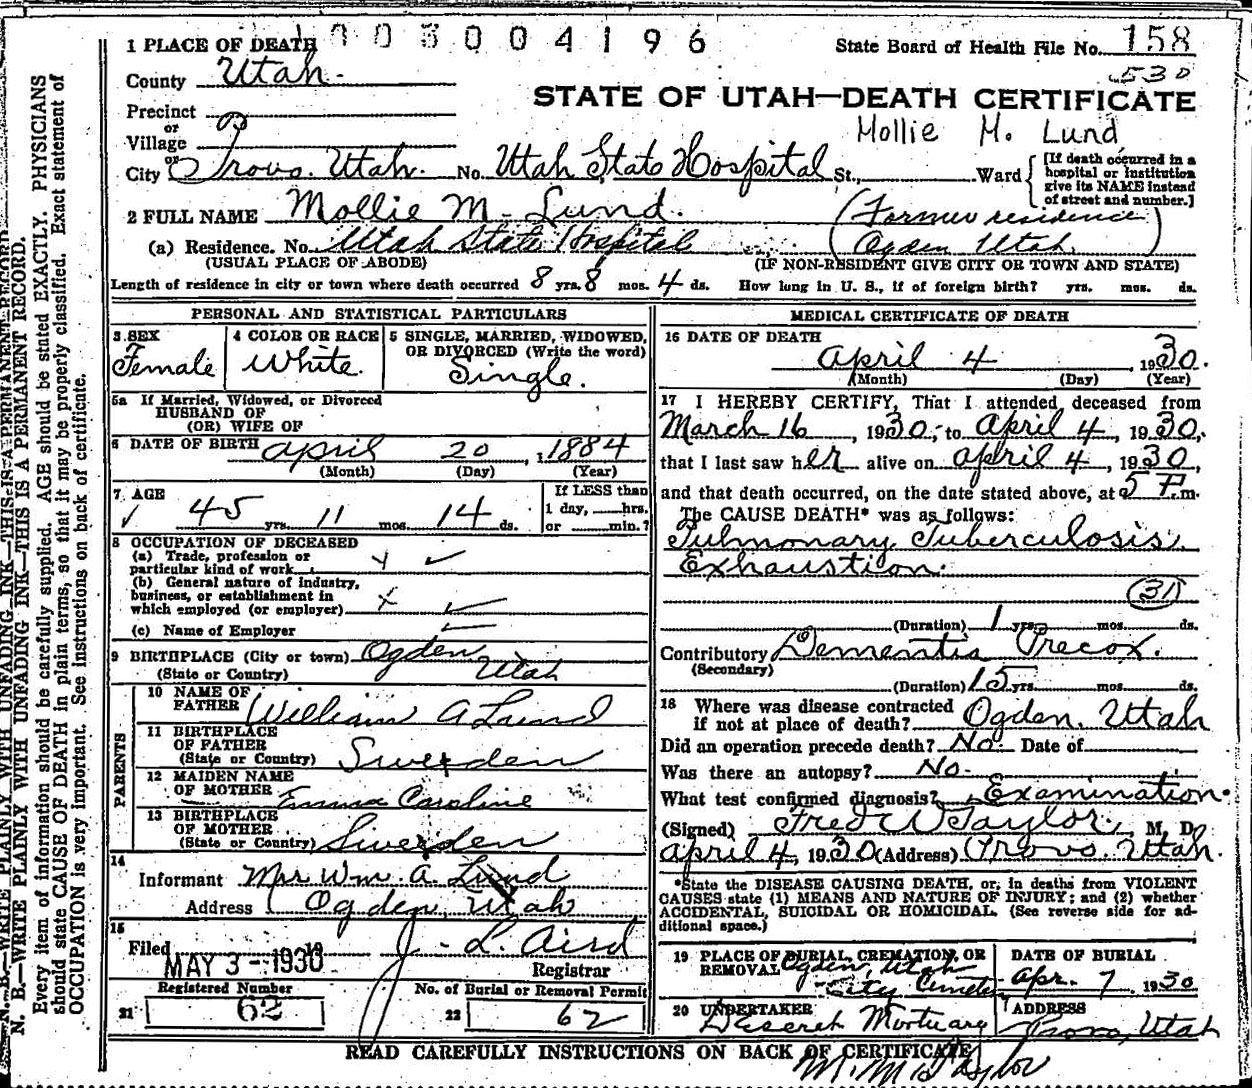 1 PLACE OF DEATH 003004196 State Board of Health File No. 158
County Utah. 530
STATE OF UTAH—DEATH CERTIFICATE
Precinct
or
Village
or
Mollie M. Lund
City Provo. Utah. No. Utah State Hospital St., Ward [If death occurred in a hospital or institution give its NAME instead of street and number.]
2 FULL NAME Mollie M. Lund. (Former residence
(a) Residence. No. Utah State Hospital Ogden Utah)
(USUAL PLACE OF ABODE) (IF NON-RESIDENT GIVE CITY OR TOWN AND STATE)
Length of residence in city or town where death occurred 8 yrs. 8 mos. 4 ds. How long in U. S., if of foreign birth? yrs. mos. ds.
PERSONAL AND STATISTICAL PARTICULARS
3 SEX
Female
4 COLOR OR RACE
White.
5 SINGLE, MARRIED, WIDOWED,
OR DIVORCED (Write the word)
Single.
5a If Married, Widowed, or Divorced
HUSBAND OF
(OR) WIFE OF
6 DATE OF BIRTH April 20, 1884
(Month) (Day) (Year)
7 AGE
45 yrs. 11 mos. 14 ds.
If LESS than
1 day, hrs.
or min.?
8 OCCUPATION OF DECEASED
(a) Trade, profession or
particular kind of work
(b) General nature of industry,
business, or establishment in
which employed (or employer)
(c) Name of Employer
9 BIRTHPLACE (City or town) Ogden
(State or Country) Utah
PARENTS
10 NAME OF
FATHER William A Lund
11 BIRTHPLACE
OF FATHER
(State or Country) Sweeden
12 MAIDEN NAME
OF MOTHER Emma Caroline
13 BIRTHPLACE
OF MOTHER
(State or Country) Sweeden
14
Informant Mrs Wm. A. Lund
Address Ogden, Utah
15
Filed MAY 3 - 1930 19 J. L. Aird
Registrar
Registered Number
21 62
No. of Burial or Removal Permit
22 62
MEDICAL CERTIFICATE OF DEATH
16 DATE OF DEATH
April 4, 1930.
(Month) (Day) (Year)
17 I HEREBY CERTIFY, That I attended deceased from
March 16, 1930, to April 4, 1930,
that I last saw her alive on April 4, 1930,
and that death occurred, on the date stated above, at 5 P.m.
The CAUSE DEATH* was as follows:
Pulmonary Tuberculosis.
Exhaustion.
31
(Duration) 1 yrs. mos. ds.
Contributory Dementia Precox.
(Secondary)
(Duration) 15 yrs. mos. ds.
18 Where was disease contracted
if not at place of death? Ogden, Utah
Did an operation precede death? No. Date of
Was there an autopsy? No.
What test confirmed diagnosis? Examination.
(Signed) Fred W Taylor, M. D.
April 4, 1930 (Address) Provo. Utah.
*State the DISEASE CAUSING DEATH, or, in deaths from VIOLENT
CAUSES state (1) MEANS AND NATURE OF INJURY; and (2) whether
ACCIDENTAL, SUICIDAL OR HOMICIDAL. (See reverse side for ad-
ditional space.)
19 PLACE OF BURIAL, CREMATION, OR
REMOVAL Ogden, Utah
City Cemetery
DATE OF BURIAL
Apr. 7 1930
20 UNDERTAKER
Deseret Mortuary
ADDRESS
Provo, Utah
READ CAREFULLY INSTRUCTIONS ON BACK OF CERTIFICATE
N. B.—WRITE PLAINLY WITH UNFADING INK—THIS IS A PERMANENT RECORD.
N. B.—WRITE PLAINLY WITH UNFADING INK—THIS IS A PERMANENT RECORD.
Every item of information should be carefully supplied. AGE should be stated EXACTLY. PHYSICIANS
should state CAUSE OF DEATH in plain terms, so that it may be properly classified. Exact statement of
OCCUPATION is very important. See instructions on back of certificate.